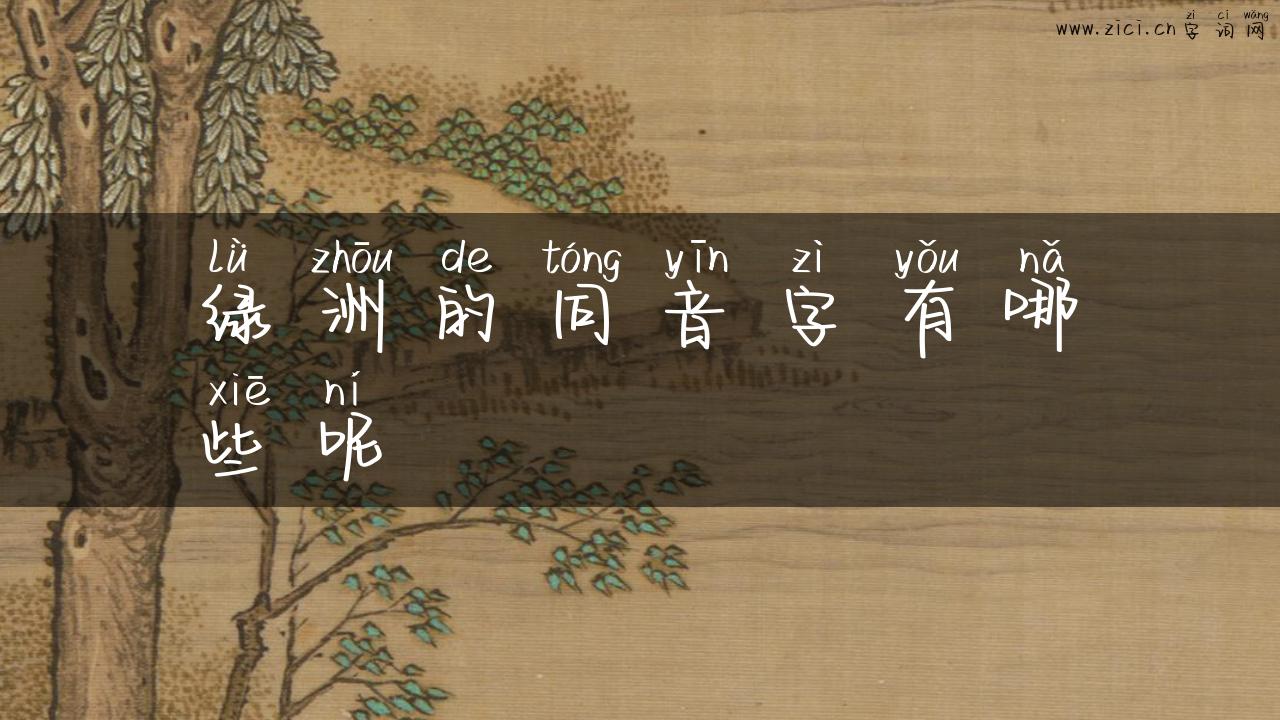 zì cí wǎng
www.zici.cn 字词网
lǜ zhōu de tóng yīn zì yǒu nǎ
绿洲的同音字有哪
xiē ní
些呢